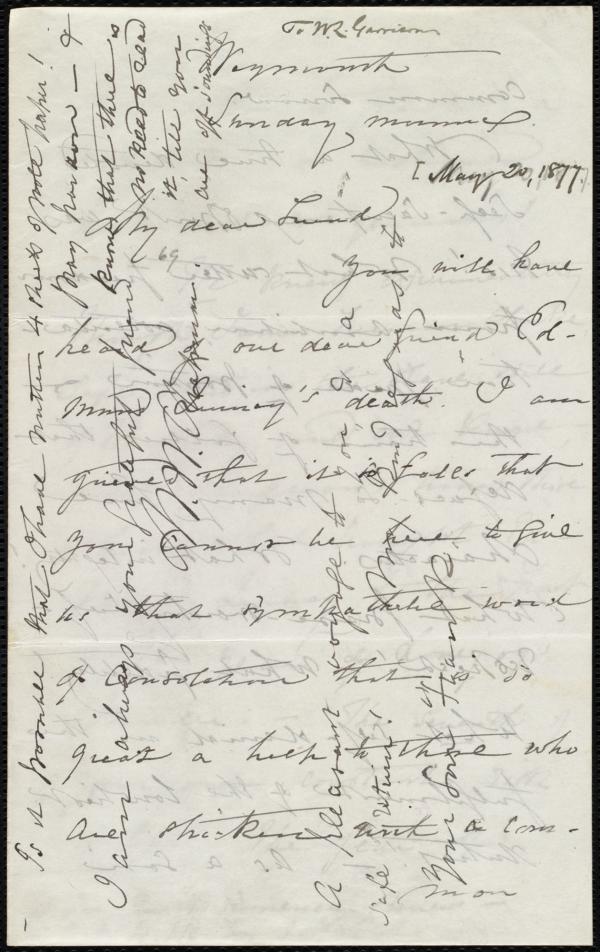 To W. L. Garrison
Weymouth
Sunday morning.
[May 20, 1877.]
My dear Friend
69
You will have
heard our dear friend Ed-
mund Quincy's death. I am
grieved that it so falls that
you cannot be here to give
us that sympathetic word
of consolation that is so
great a help to those who
are stricken with a com-
mon
Is it possible that I have written 4 sheets of note paper!
Pray pardon — &
know that there is
no need to read
it, till you
are off soundings
I am always your grateful friend
A pleasant voyage to you & a
safe return!
your son Frank.